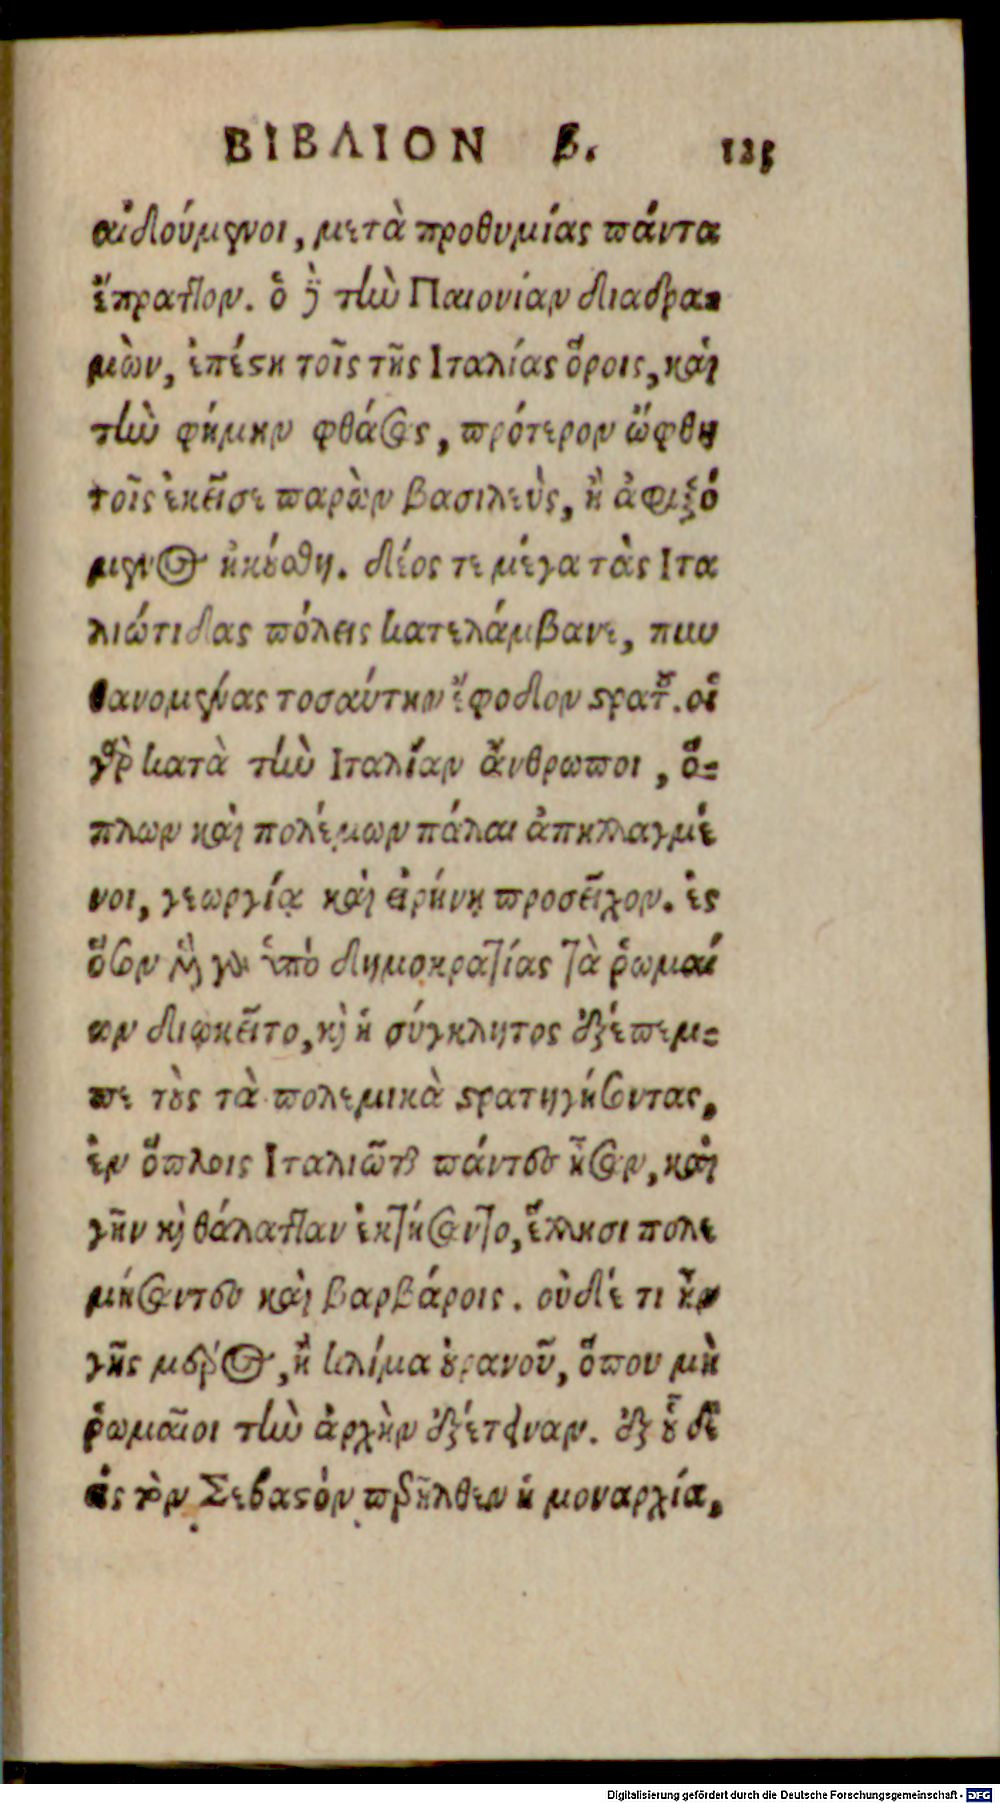 ΒΙΒΛΙΟΝ β. 125
αἰδούμενοι, μετὰ προθυμίας πάντα
ἔπραττον. ὁ δὲ τὴν Παιονίαν διαδρα-
μὼν, ἐπέστη τοῖς τῆς Ιταλίας ὅροις, καὶ
τὴν φήμην φθάσας, πρότερον ὤφθη
τοῖς ἐκεῖσε παρὼν βασιλεὺς, ἢ ἀφιξό
μενος ἠκούσθη. δέος τε μέγα τὰς Ιτα
λιώτιδας πόλεις κατελάμβανε, πυν
θανομένας τοσαύτην ἔφοδον στρατοῦ. οἱ
γὰρ κατὰ τὴν Ιταλίαν ἄνθρωποι, ὅ-
πλων καὶ πολέμων πάλαι ἀπηλλαγμέ
νοι, γεωργίᾳ καὶ εἰρήνῃ προσεῖχον. ἐς
ὅσον μὲν γὰρ ὑπὸ δημοκρατίας τὰ ῥωμαί
ων διῳκεῖτο, καὶ ἡ σύγκλητος ἐξέπεμ-
πε τοὺς τὰ πολεμικὰ στρατηγήσοντας,
ἐν ὅπλοις Ιταλιῶται πάντες ἦσαν, καὶ
γῆν καὶ θάλατταν ἐκτήσαντο, ἕλλησι πολε
μήσαντες καὶ βαρβάροις. οὐδέ τι ἦν
γῆς μέρος, ἢ κλίμα οὐρανοῦ, ὅπου μὴ
ῥωμαῖοι τὴν ἀρχὴν ἐξέτειναν. ἐξ οὗ δὲ
ἐς τὸν Σεβαστὸν περιῆλθεν ἡ μοναρχία,
Digitalisierung gefördert durch die Deutsche Forschungsgemeinschaft - DFG